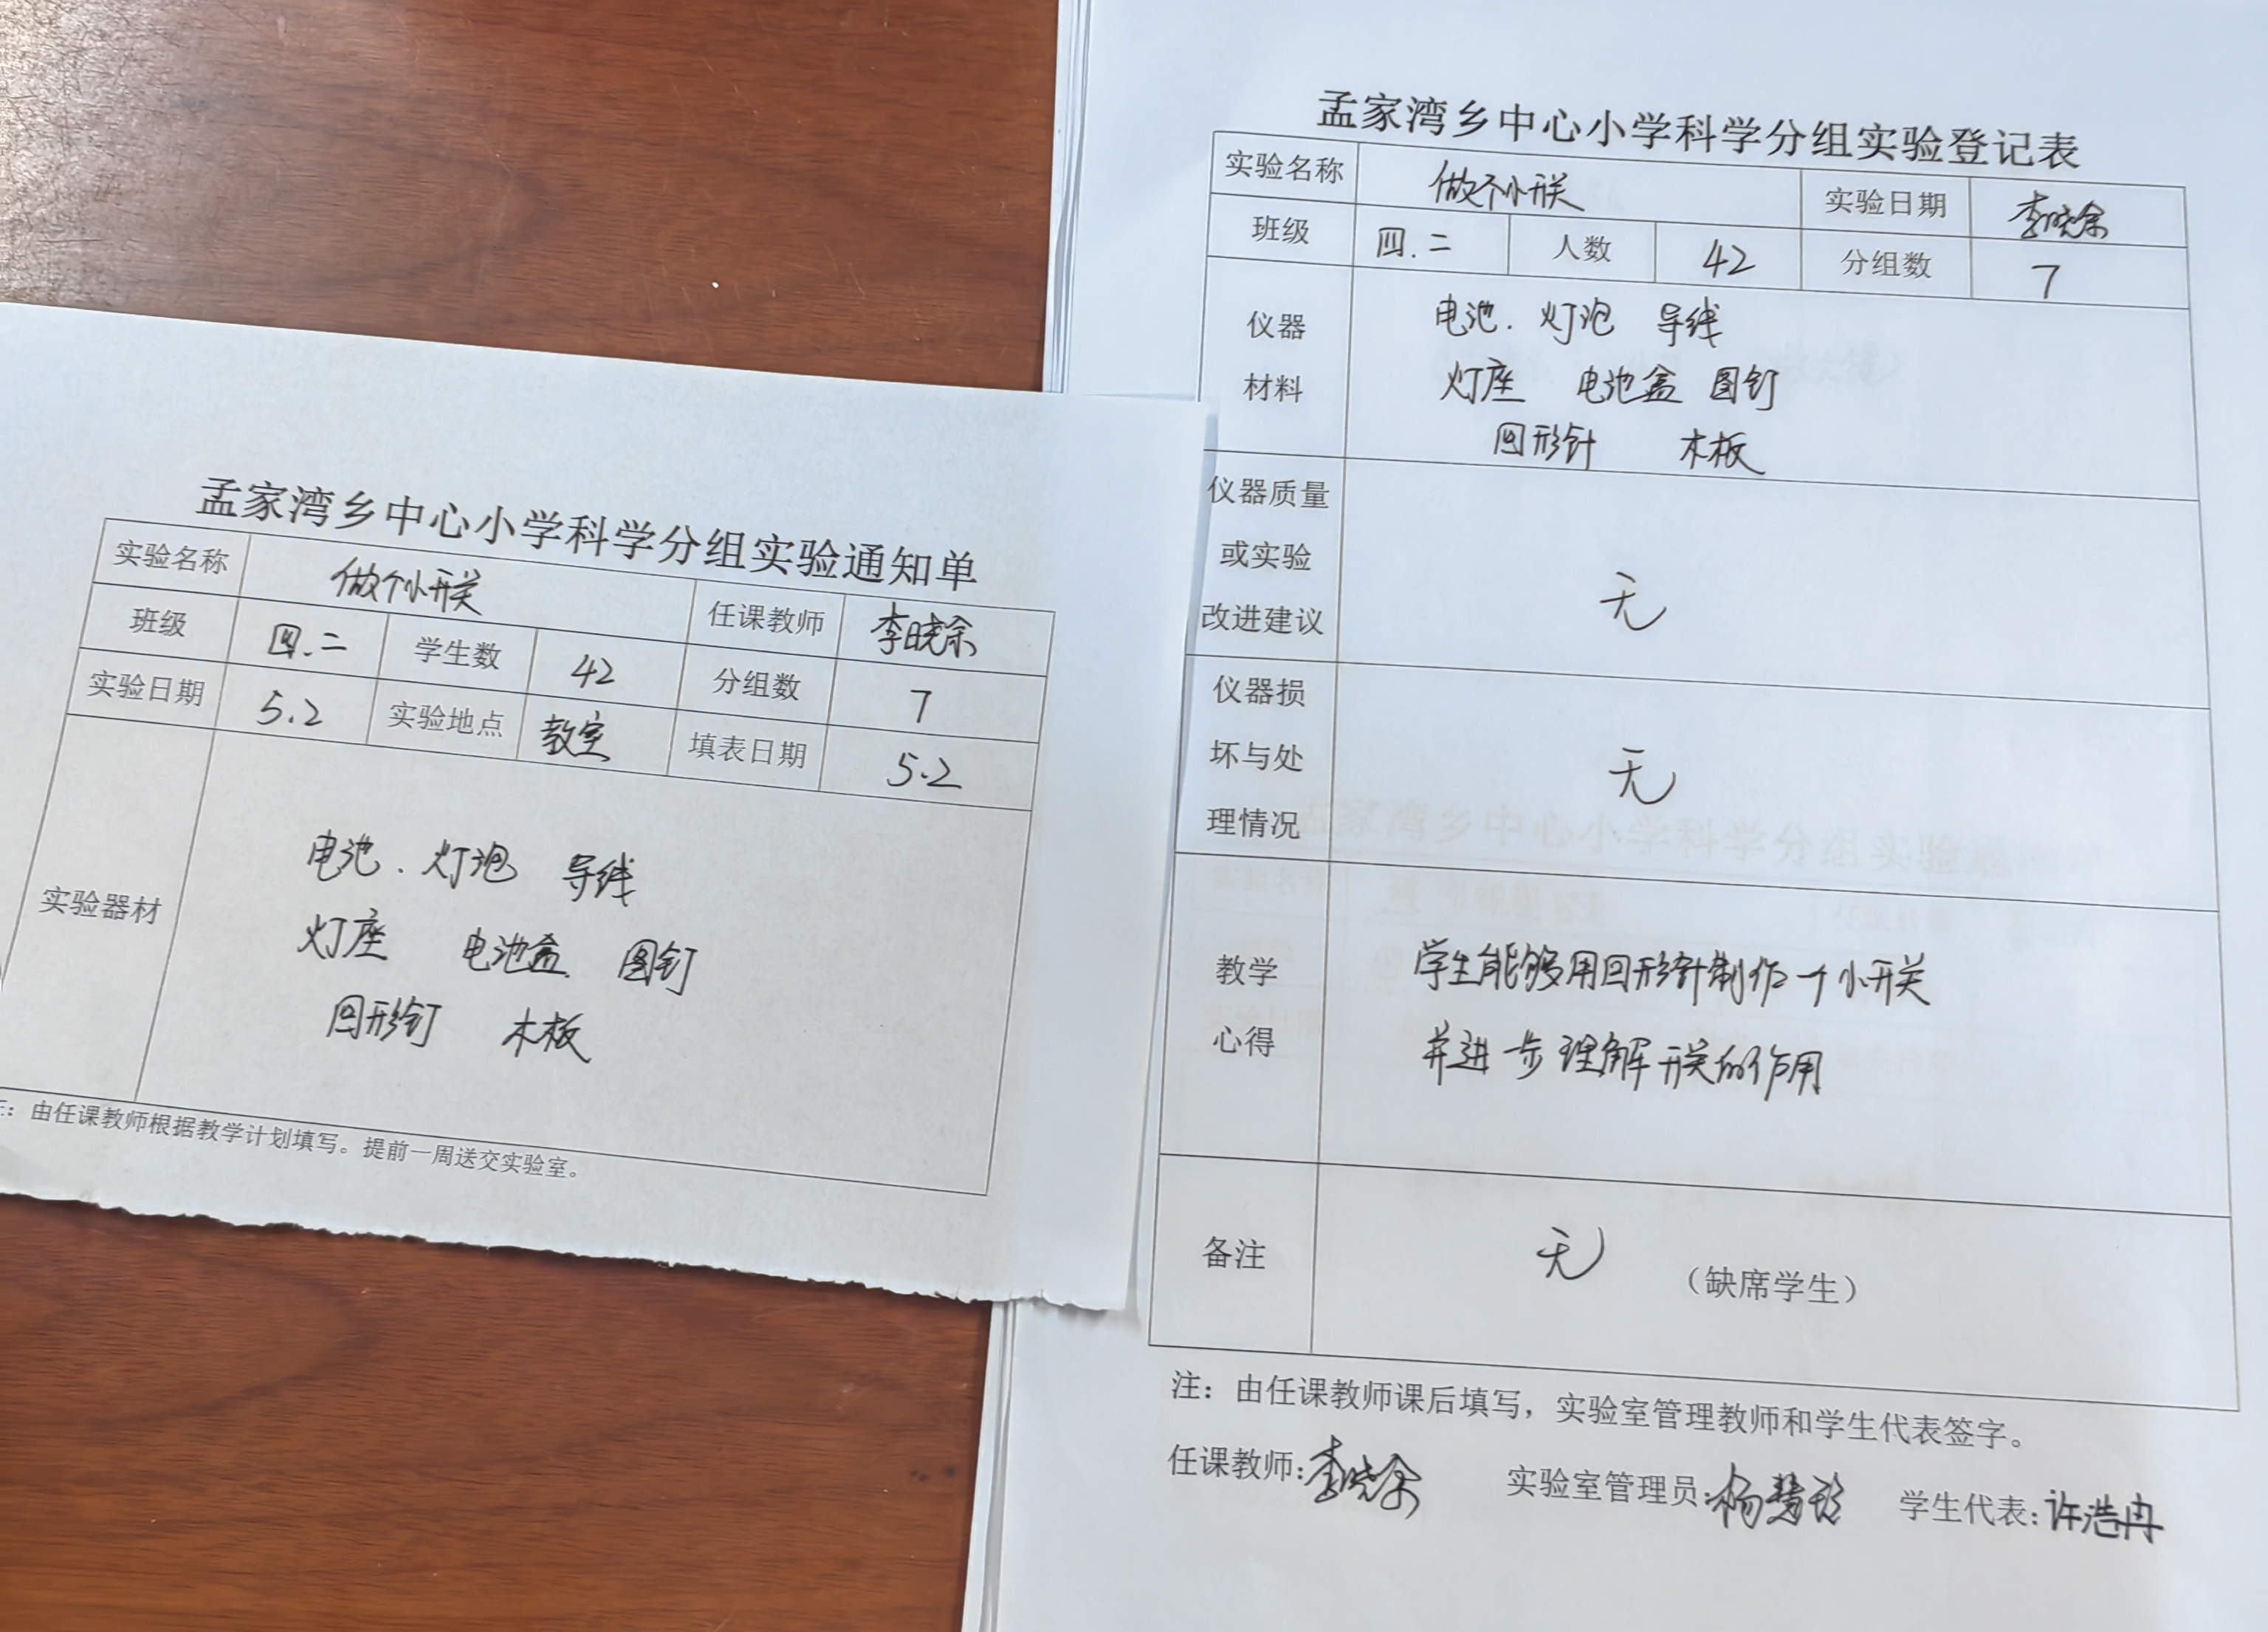 孟家湾乡中心小学科学分组实验通知单
实验名称 做个小开关 任课教师 李晓余
班级 四.二 学生数 42 分组数 7
实验日期 5.2 实验地点 教室 填表日期 5.2
实验器材
电池.灯泡 导线
灯座 电池盒. 图钉
回形钉 木板
注：由任课教师根据教学计划填写。提前一周送交实验室。
孟家湾乡中心小学科学分组实验登记表
实验名称 做个小开关 实验日期 李晓余
班级 四.二 人数 42 分组数 7
仪器
材料
电池.灯泡 导线
灯座 电池盒 图钉
回形针 木板
仪器质量
或实验
改进建议
无
仪器损
坏与处
理情况
无
教学
心得
学生能够用回形针制作一个小开关
并进一步理解开关的作用
备注 无 （缺席学生）
注：由任课教师课后填写，实验室管理教师和学生代表签字。
任课教师：李晓余 实验室管理员：杨慧玲 学生代表：许浩冉